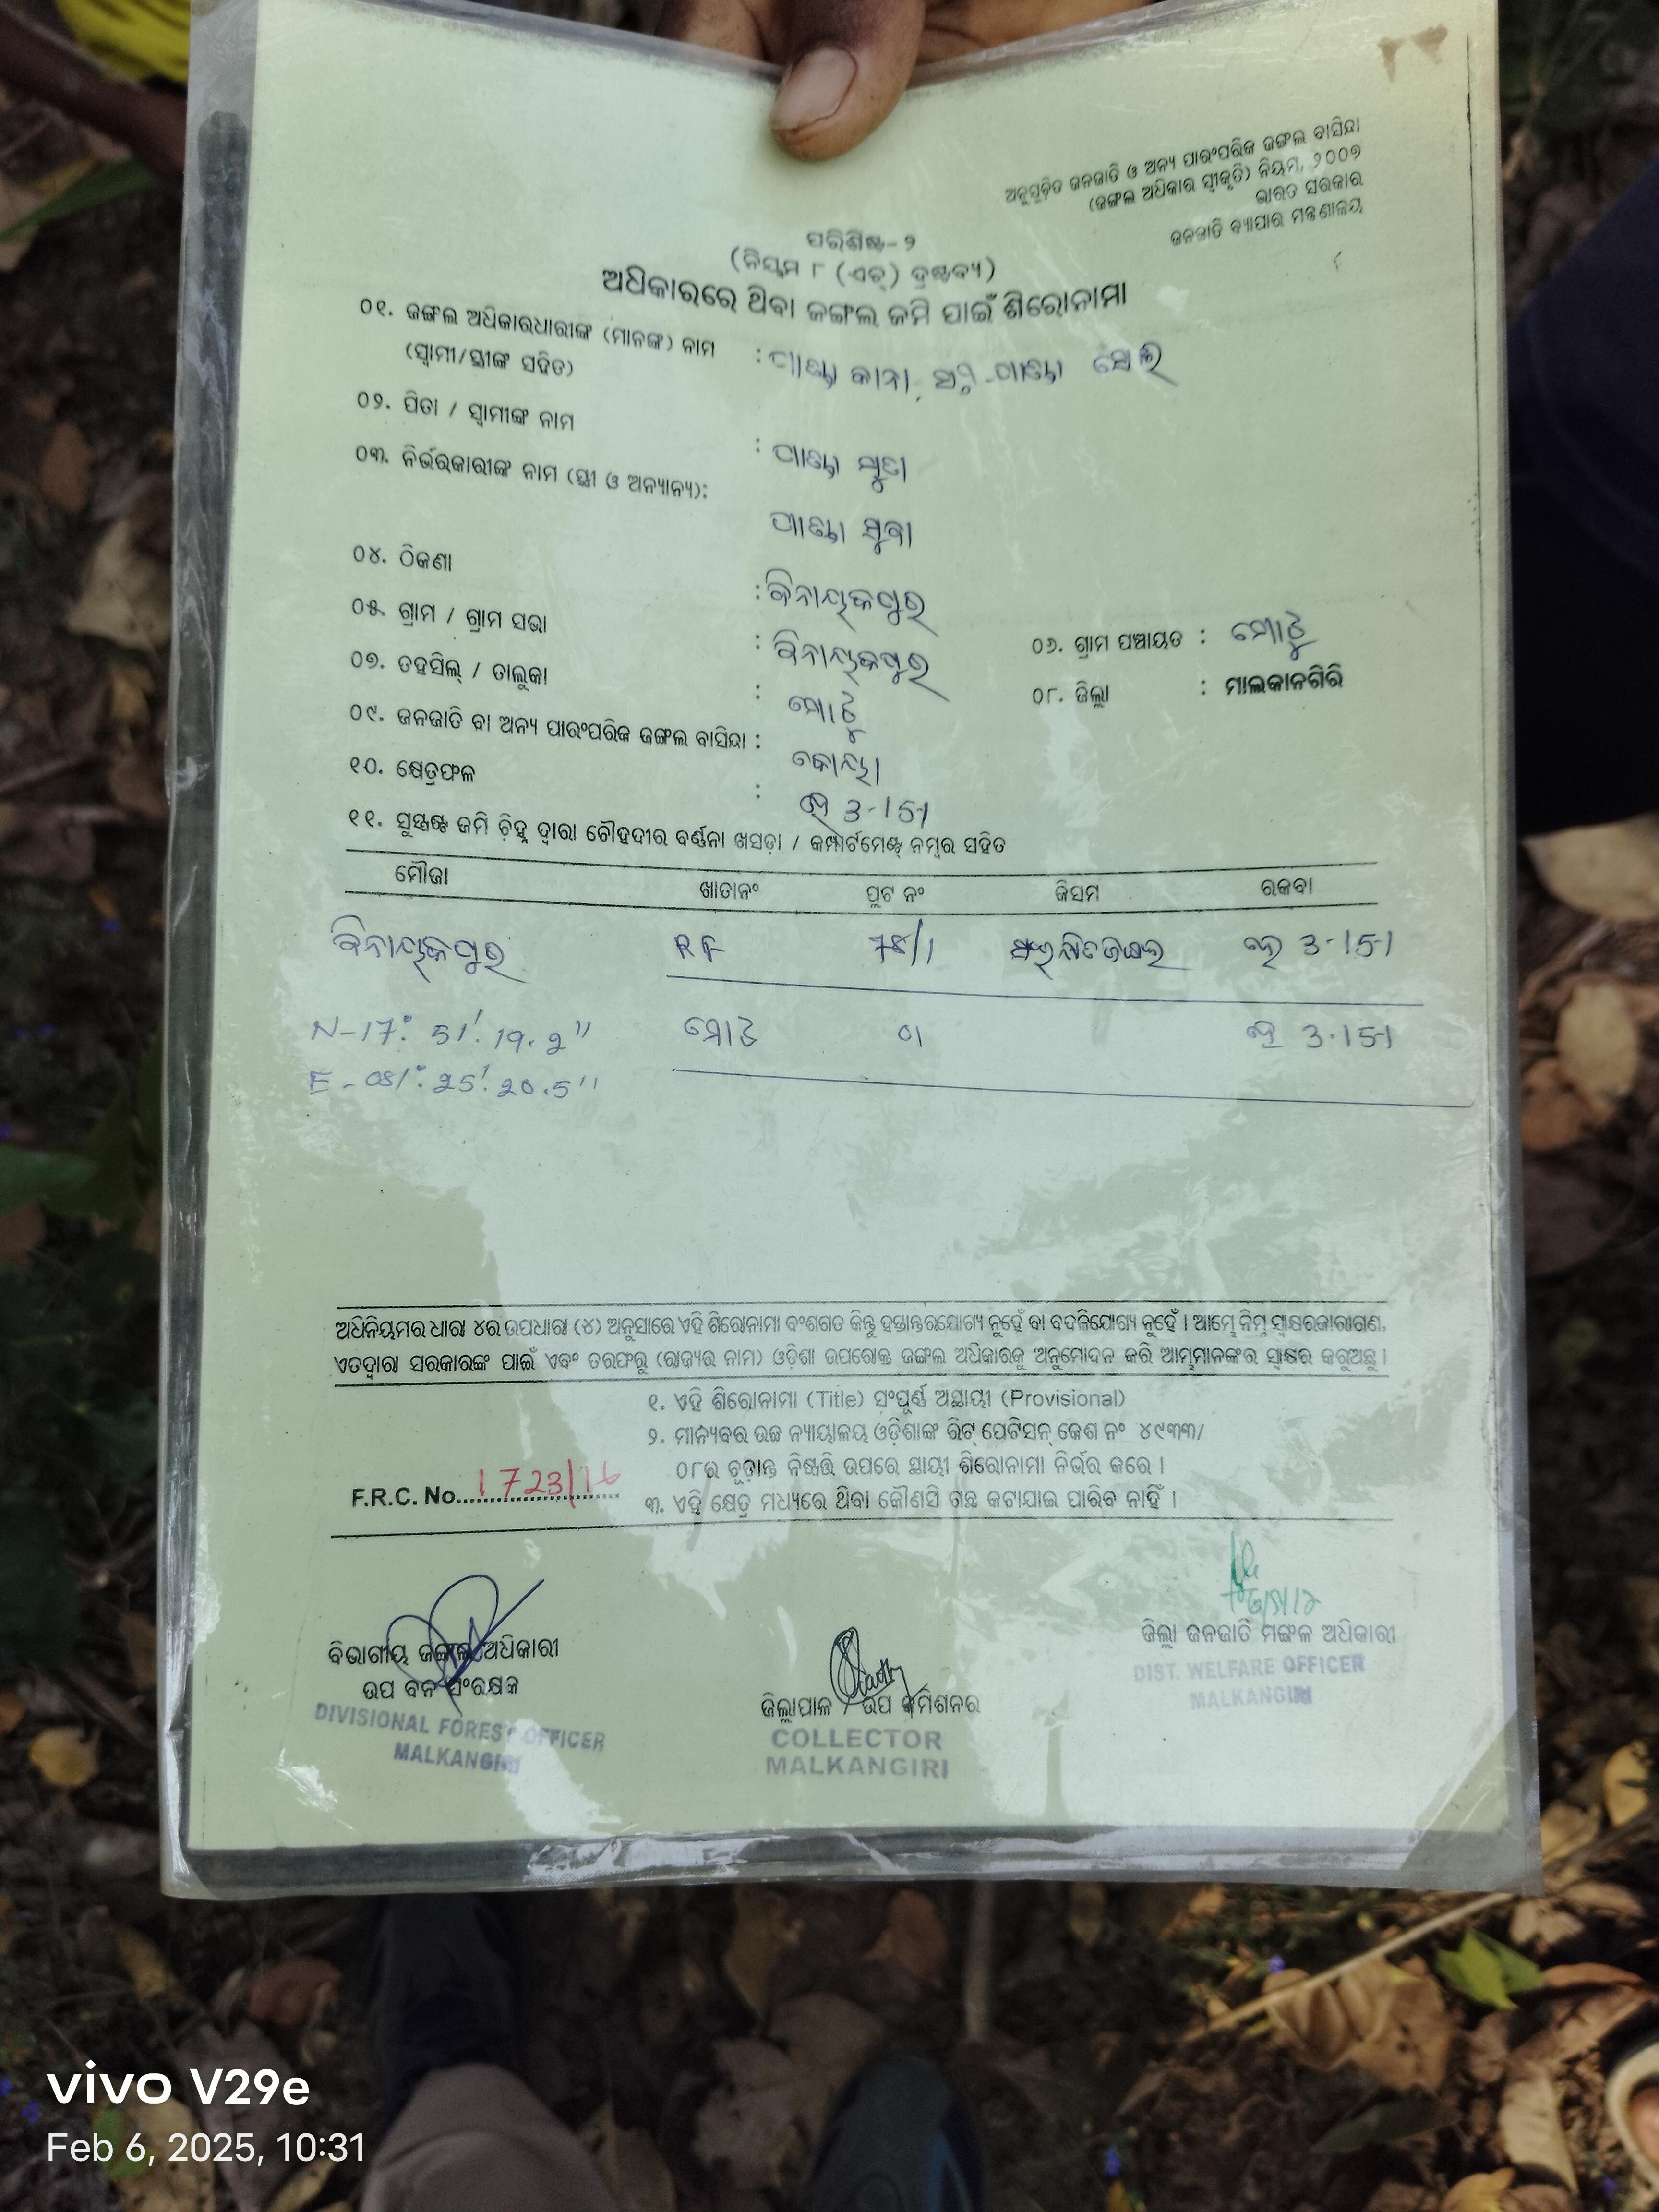 ଅନୁସୂଚିତ ଜନଜାତି ଓ ଅନ୍ୟ ପାରଂପରିକ ଜଙ୍ଗଲ ବାସିନ୍ଦା
(ଜଙ୍ଗଲ ଅଧିକାର ସ୍ୱୀକୃତି) ନିୟମ, ୨୦୦୭
ଭାରତ ସରକାର
ଜନଜାତି ବ୍ୟାପାର ମନ୍ତ୍ରଣାଳୟ
ପରିଶିଷ୍ଟ- ୨
(ନିୟମ ୮ (ଏଚ୍) ଦ୍ରଷ୍ଟବ୍ୟ)
ଅଧିକାରରେ ଥିବା ଜଙ୍ଗଲ ଜମି ପାଇଁ ଶିରୋନାମା
୦୧. ଜଙ୍ଗଲ ଅଧିକାରଧାରୀଙ୍କ (ମାନଙ୍କ) ନାମ
(ସ୍ୱାମୀ/ସ୍ତ୍ରୀଙ୍କ ସହିତ) :
୦୨. ପିତା / ସ୍ୱାମୀଙ୍କ ନାମ :
୦୩. ନିର୍ଭରକାରୀଙ୍କ ନାମ (ସ୍ତ୍ରୀ ଓ ଅନ୍ୟାନ୍ୟ):
୦୪. ଠିକଣା : ବିନାୟକପୁର
୦୫. ଗ୍ରାମ / ଗ୍ରାମ ସଭା : ବିନାୟକପୁର ୦୬. ଗ୍ରାମ ପଞ୍ଚାୟତ : ମୋଟୁ
୦୭. ତହସିଲ୍ / ତାଲୁକା : ମୋଟୁ ୦୮. ଜିଲ୍ଲା : ମାଲକାନଗିରି
୦୯. ଜନଜାତି ବା ଅନ୍ୟ ପାରଂପରିକ ଜଙ୍ଗଲ ବାସିନ୍ଦା : କୋୟା
୧୦. କ୍ଷେତ୍ରଫଳ : 3-151
୧୧. ସୁସ୍ପଷ୍ଟ ଜମି ଚିହ୍ନ ଦ୍ୱାରା ଚୌହଦୀର ବର୍ଣ୍ଣନା ଖସଡ଼ା / କମ୍ପାର୍ଟମେଣ୍ଟ ନମ୍ବର ସହିତ
ମୌଜା ଖାତାନଂ ପ୍ଲଟ ନଂ କିସମ ରକବା
ବିନାୟକପୁର RF 78/1 3-151
N-17° 51' 19.2" ମୋଟ ୦୧ 3.151
E-081° 25' 20.5"
ଅଧିନିୟମର ଧାରା ୪ର ଉପଧାରା (୪) ଅନୁସାରେ ଏହି ଶିରୋନାମା ବଂଶଗତ କିନ୍ତୁ ହସ୍ତାନ୍ତରଯୋଗ୍ୟ ନୁହେଁ ବା ବଦଳିଯୋଗ୍ୟ ନୁହେଁ । ଆମ୍ଭେ ନିମ୍ନ ସ୍ୱାକ୍ଷରକାରୀଗଣ,
ଏତଦ୍ୱାରା ସରକାରଙ୍କ ପାଇଁ ଏବଂ ତରଫରୁ (ରାଜ୍ୟର ନାମ) ଓଡ଼ିଶା ଉପରୋକ୍ତ ଜଙ୍ଗଲ ଅଧିକାରକୁ ଅନୁମୋଦନ କରି ଆମ୍ଭମାନଙ୍କର ସ୍ୱାକ୍ଷର କରୁଅଛୁ ।
୧. ଏହି ଶିରୋନାମା (Title) ସଂପୂର୍ଣ୍ଣ ଅସ୍ଥାୟୀ (Provisional)
୨. ମାନ୍ୟବର ଉଚ୍ଚ ନ୍ୟାୟାଳୟ ଓଡ଼ିଶାଙ୍କ ରିଟ୍ ପେଟିସନ୍ କେଶ ନଂ ୪୯୩୩/
୦୮ର ଚୂଡ଼ାନ୍ତ ନିଷ୍ପତ୍ତି ଉପରେ ସ୍ଥାୟୀ ଶିରୋନାମା ନିର୍ଭର କରେ ।
F.R.C. No. 1723/16
୩. ଏହି କ୍ଷେତ୍ର ମଧ୍ୟରେ ଥିବା କୌଣସି ଗଛ କଟାଯାଇ ପାରିବ ନାହିଁ ।
ବିଭାଗୀୟ ଜଙ୍ଗଲ ଅଧିକାରୀ
ଉପ ବନ ସଂରକ୍ଷକ
DIVISIONAL FOREST OFFICER
MALKANGIRI
ଜିଲ୍ଲାପାଳ / ଉପ କମିଶନର
COLLECTOR
MALKANGIRI
ଜିଲ୍ଲା ଜନଜାତି ମଙ୍ଗଳ ଅଧିକାରୀ
DIST. WELFARE OFFICER
MALKANGIRI
vivo V29e
Feb 6, 2025, 10:31